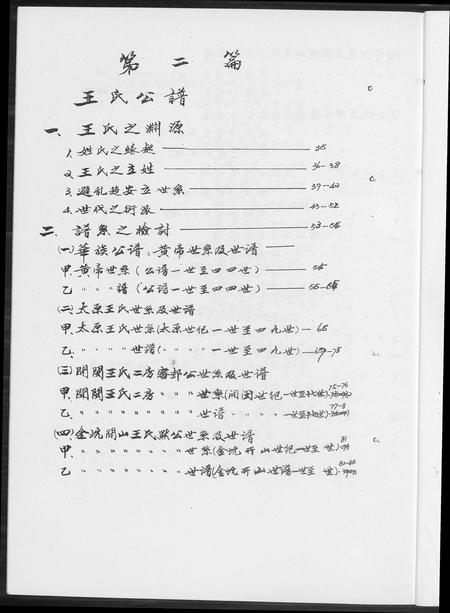 第二篇
王氏公譜
一、王氏之淵源
1. 姓氏之緣起 35
2. 王氏之立姓 36-38
3. 避乱趋安立世系 39-42
4. 世代之衍派 43-52
二、譜系之檢討 53-54
(一)華族公譜：黄帝世系及世譜
甲.黄帝世系（公譜一世至四四世） 55
乙 〃 〃 〃 譜（公譜一世至四四世） 55-
(二)太原王氏世系及世譜
甲.太原王氏世系(太原世纪一世至四九世) 65
乙. 〃 〃 〃 〃 世譜( 〃 〃 〃 〃 一世至四九世) -75
(三)開閩王氏二房審邽公世系及世譜
甲.開閩王氏二房 〃 〃 〃 世系(開閩世纪一世至 世) 75-76
乙. 〃 〃 〃 〃 〃 〃 〃 〃 世譜 〃 〃 〃 〃 一世至 世) 77-8
(四)金坑開山王氏默公世系及世譜
甲、 〃 〃 〃 〃 〃 〃 〃 世系(金坑开山世纪一世至 世) 81
乙 〃 〃 〃 〃 〃 〃 〃 世譜(金坑开山世譜一世至 世)